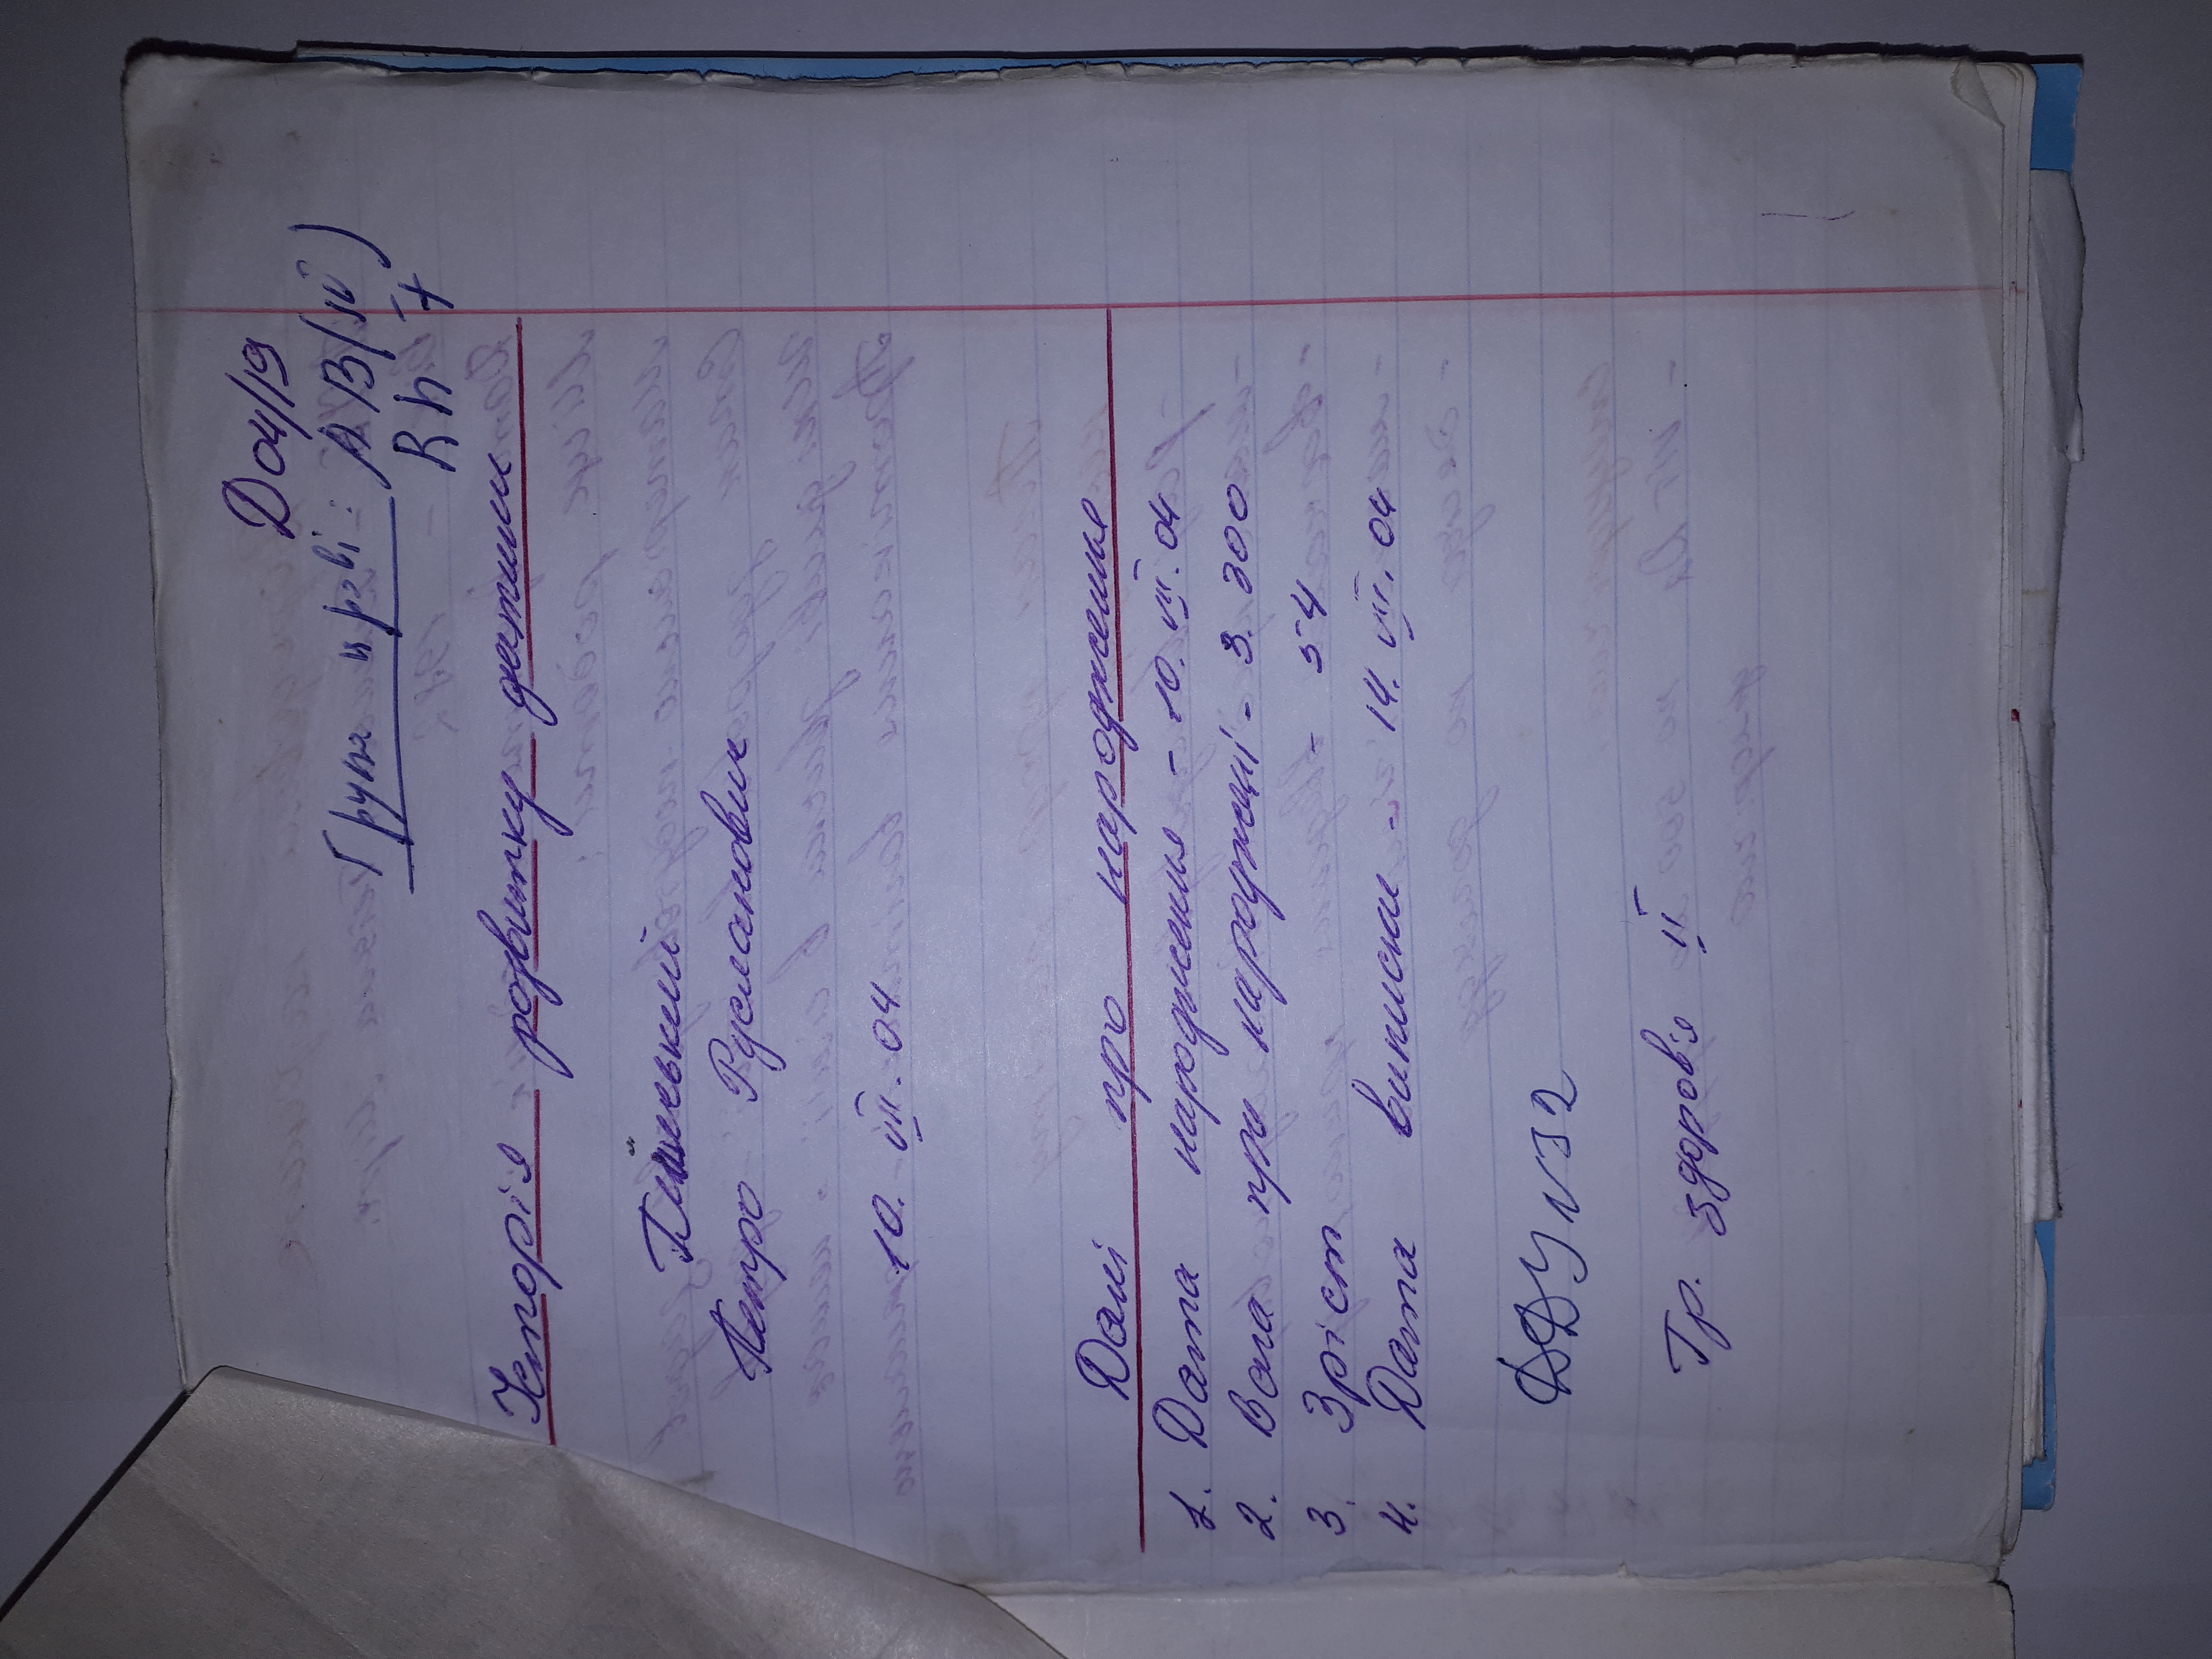 Д 04/19
Група крові: AB(IV)
Rh +
Історія розвитку дитини
Петро Русланович
10. VII. 04
Дані про народження
1. Дата народження - 10. VII. 04
2. Вага при народжені - 3. 300
3. Зріст - 54
4. Дата виписки - 14. VII. 04
ДДУ N 32
Гр. здоров'я II